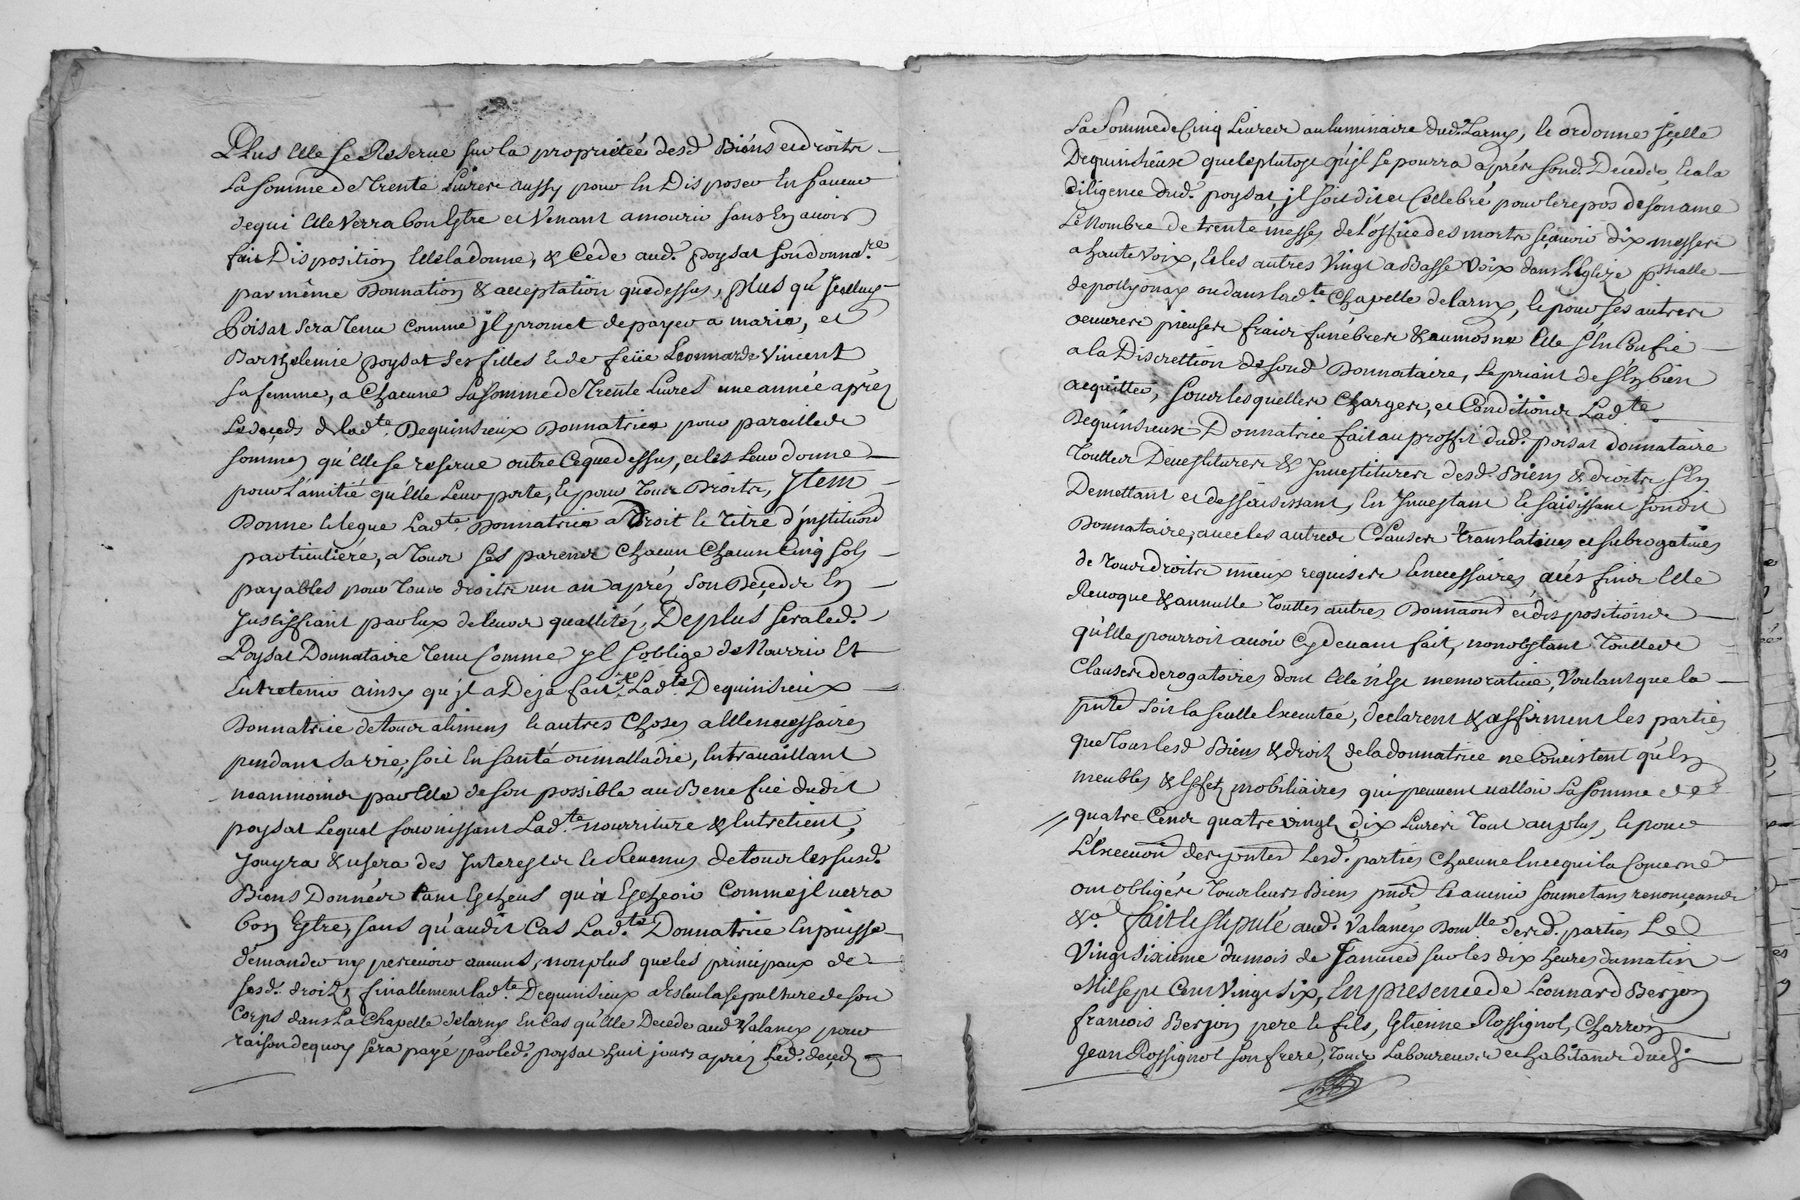 Plus elle se Reserve sur la propriétée desd Biens et droitz
La somme de Trente Livres aussy pour en Disposer en faveur
de qui elle verra bon Estre et Venant a mourir sans En avoir
fait Disposition elle la donne, & Cede aud. poysat son donna.re
par même Donnation & acceptation que dessus, plus qu'Jcelluy
Poisat sera tenu comme jl promet de payer a marie, et
Barthelemie poysat ses filles et de feüe Leonnarde Vincent
sa femme, a chacune La somme de Trente Livres une année après
Le deceds de lad.te Dequinsieux Donnatrice pour pareille
somme qu'elle se reserve outre Ce que dessus, et les Leur donne
pour L'amitié qu'elle Leur porte, et pour tous Droitz, Jtem
Donne et legue Lad.te Donnatrice a Droit et titre d'jnstitution
particuliere, a tous ses parens chacun Chacun Cinq sols
payables pour tous droitz un an aprés son Decedz En
Justiffiant par eux de leurs quallités, De plus sera led.
Poysat Donnataire tenu Comme yl s'oblige de Nourrir Et
Entretenir ainsy qu'jl a Deja fait Lad.te Dequinsieux
Donnatrice de tous alimens et autres choses a elle necessaires
pendant sa vie, soit en santé ou malladie, en travaillant
neanmoins par elle de son possible au Benefice dudit
poysat Lequel fournissant Lad.te nourriture & Entretient,
Jouyra & usera des Jnterests et Revenus de tous les susd.
Biens Donnés tant Echeus qu'à Echeoir Comme jl verra
bon Estre, sans qu'audit Cas Lad.te Donnatrice en puisse
demander ny percevoir aucuns, non plus que les principaux de
sesd. droitz finallement lad.te Dequinsieux a Esleu la sepulture de son
Corps dans La Chapelle de larny En Cas qu'elle Decede aud Valancy pour
raison de quoy sera payé par led. poysat huit jours aprés Led. decedz
La somme de Cinq Livres au luminaire dud. Larny, et ordonne jcelle
Dequinsieux que le plutost qu'jl se pourra aprés sond. Decedz, et a la
diligence dud. poysat jl soit dit et Cellebré pour le repos de son ame
Le Nombre de trente messes de l'office des morts sçavoir dix messes
a haute Voix, et les autres Vingt a Basse Voix dans l'Eglize p.ssialle
de pollyonay ou dans lad.te Chapelle de larny, et pour ses autres
oeuvres pieuses fraix funébres & aumosne Elle s'En Confie
a la Discrettion de sond Donnataire, Le priant de s'En bien
acquitter, sous lesquelles Charges, et Conditions Lad.te
Dequinsieux Donnatrice fait au proffit dud. poisat donnataire
touttes Devestitures & Jnvestitures desd. Biens & droitz s'En
Demettant et dessaisissant, en Jnvestant et saisissant sondit
Donnataire, avec les autres Clauses translatives et subrogatives
de tous droitz mieux requises et necessaires aües fins Elle
Revoque & annulle touttes autres Donnaons et dispositions
qu'elle pourroit avoir Cy devant fait, nonobstant touttes
Clauses derogatoires dont elle n'est memorative, Voulant que la
pnte soit la seulle Executée, declarent & affirment les parties
que tous lesd Biens & droitz de la donnatrice ne Consistent qu'En
meubles & Effets mobiliaires qui peuvent valloir La somme de
quatre Cens quatre vingt dix Livres tout au plus, et pour
L'execuon des pntes Lesd. parties chacune En ce qui la Concerne
ont obligés tous leurs Biens pnts et avenir soumetans renonceans
&a. fait et stipulé aud. Valancy Domlle desd. parties Le
Vingt sixieme du mois de Janvier sur les dix heures du matin
Mil sept Cens Vingt six, En presence de Leonnard Berjon
francois Berjon pere et fils, Etienne Rossignol, Charron
Jean Rossignol son frere, tous Laboureurs et habitans dud.